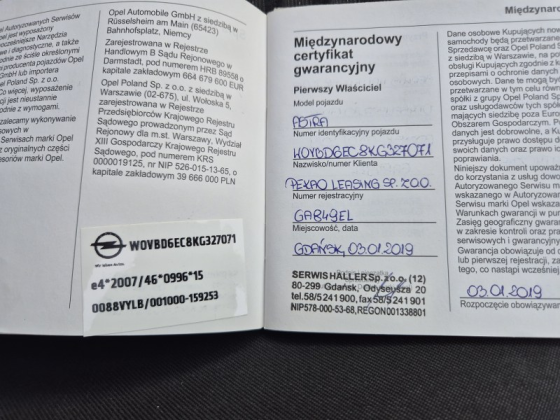 Opel Autoryzowanych Serwisów
Opel jest wyposażony
i diagnostyczne, a także
ze ściśle określonymi
producenta pojazdów Opel
GmbH lub importera
Poland Sp. z o.o.
wyposażenie
jest nieustannie
zgodnie z wymogami.
zalecamy wykonywanie
w
Serwisach marki Opel
oryginalnych części
marki Opel.
Opel Automobile GmbH z siedzibą w
Rüsselsheim am Main (65423)
Bahnhofsplatz, Niemcy
Zarejestrowana w Rejestrze
Handlowym B Sądu Rejonowego w
Darmstadt, pod numerem HRB 89558 o
kapitale zakładowym 664 679 000 EUR
Opel Poland Sp. z o.o. z siedzibą w
Warszawie (02-675), ul. Wołoska 5,
zarejestrowana w Rejestrze
Przedsiębiorców Krajowego Rejestru
Sądowego prowadzonym przez Sąd
Rejonowy dla m.st. Warszawy, Wydział
XIII Gospodarczy Krajowego Rejestru
Sądowego, pod numerem KRS
0000019125, nr NIP 526-015-13-65, o
kapitale zakładowym 39 666 000 PLN
W0VBD6EC8KG327071
e4*2007/46*0996*15
0088VYLB/001000-159253
Międzynarodowy
certyfikat
gwarancyjny
Pierwszy Właściciel
Model pojazdu
ASTRA
Numer identyfikacyjny pojazdu
W0VBD6EC8KG327071
Nazwisko/numer Klienta
PEKAO LEASING SP. Z O.O.
Numer rejestracyjny
GA849EL
Miejscowość, data
GDAŃSK, 03.01.2019
SERWIS HALLER Sp. z o.o. (12)
80-299 Gdańsk, Odyseusza 20
tel.58/5 241 900, fax 58/5 241 901
NIP578-000-53-68, REGON001338801
Międzynarod
Dane osobowe Kupujących
samochody będą przetwarzane
Sprzedawcę oraz Opel Poland
z siedzibą w Warszawie, na
obsługi Kupujących zgodnie z
przepisami o ochronie danych
osobowych. Dane te mogą być
przetwarzane w tym celu
spółki z grupy Opel Poland
oraz usługodawców tych
mających siedzibę poza
Obszarem Gospodarczym.
danych jest dobrowolne, a
przysługuje prawo dostępu
swoich danych oraz prawo
poprawiania.
Niniejszy dokument
do korzystania z usług
Autoryzowanego Serwisu
wskazanego w
Warunkach gwarancji w
Zasięg geograficzny
w zakresie kontroli oraz
serwisowych i gwarancyjnych
Gwarancja obowiązuje od
lub pierwszej rejestracji,
tego, co nastąpi wcześniej
03.01.2019
Rozpoczęcie obowiązywania